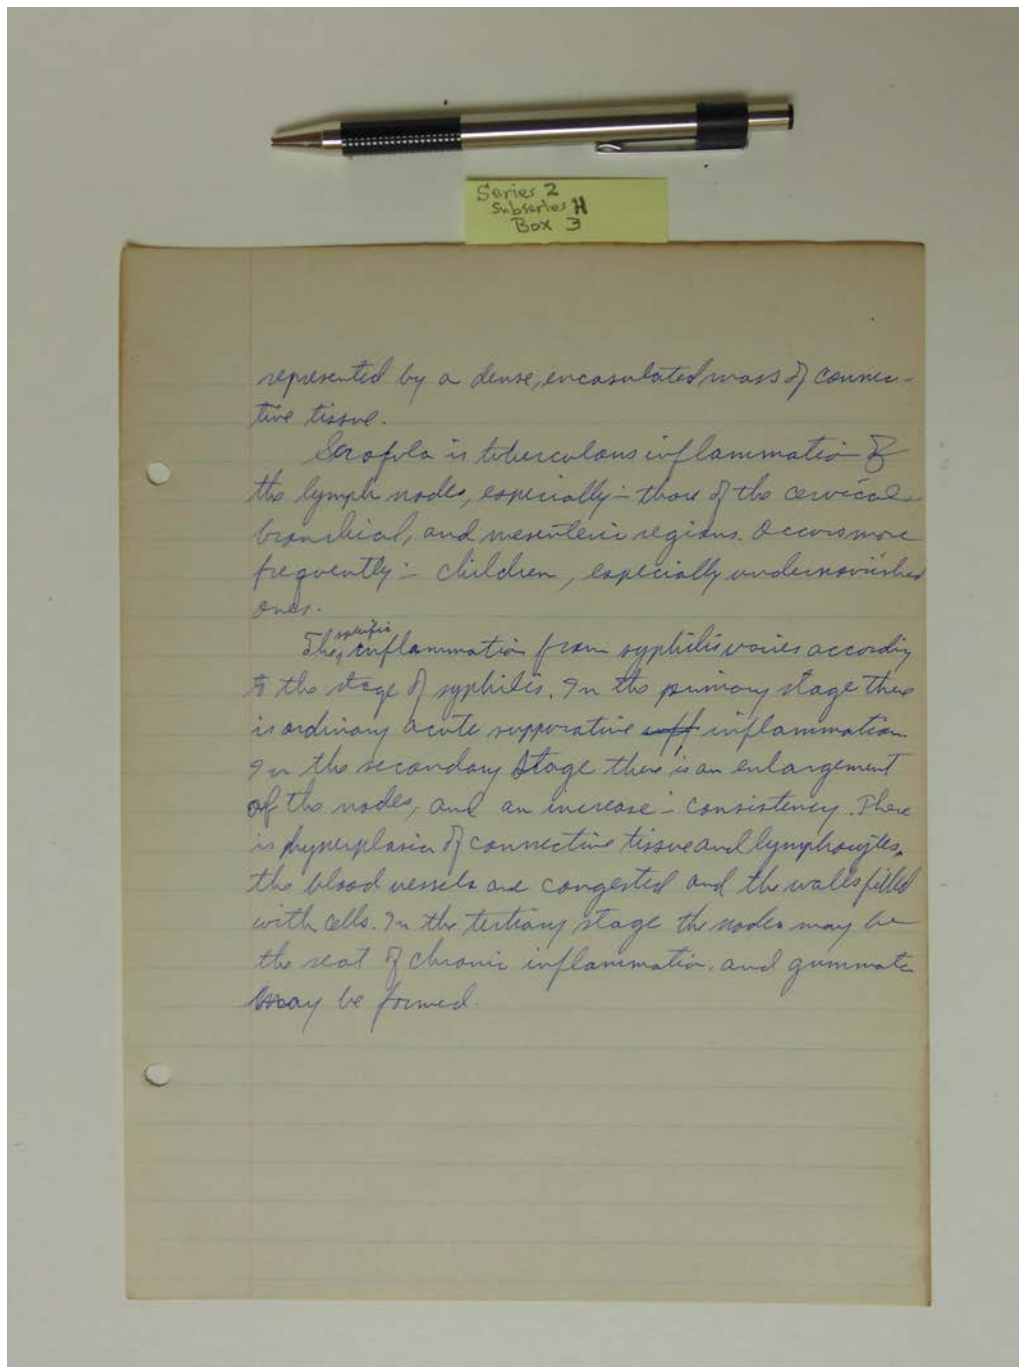 Series 2
Subseries H
Box 3
represented by a dense, encasulated mass of connec-
tive tissue.
Scrofula is tuberculous inflammation of
the lymph nodes, especially - those of the cervical,
bronchial, and mesenteric regions. Occurs more
frequently - children, especially undernourished
ones.
The specific inflammation from syphilis varies according
to the stage of syphilis. In the primary stage there
is ordinary acute suppurative inflammation.
In the secondary stage there is an enlargement
of the nodes, and an increase - consistency. There
is hyperplasia of connective tissue and lymphocytes,
the blood vessels are congested and the walls filled
with cells. In the tertiary stage the nodes may be
the seat of chronic inflammation, and gummata
may be formed.